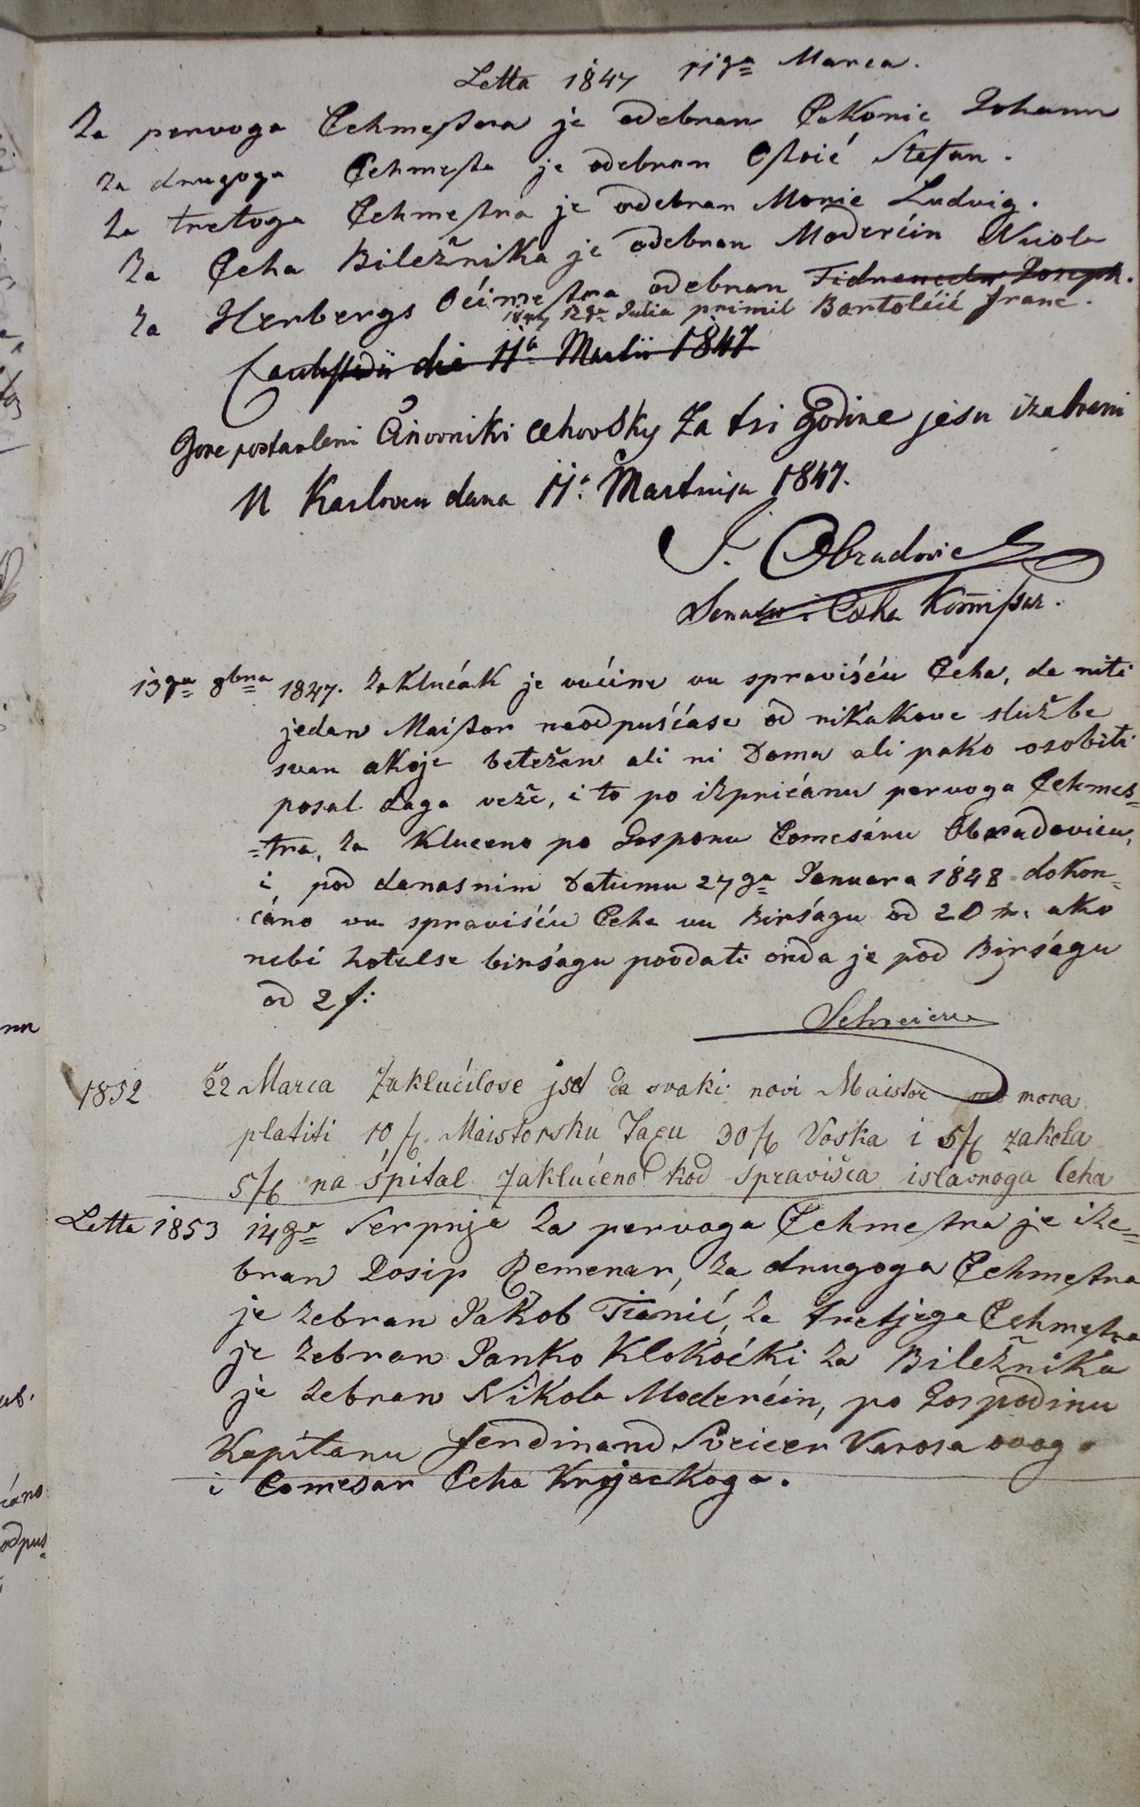 Letta 1847 11ga Marca.
Za pervoga Cehmestera je odebran Cekonic Johann
Za drugoga Cehmesta je odebran Ostoić Stefan.
Za tretoga Cehmestra je odebran Monie Ludvig.
Za Ceha Biležnika je odebran Moderćin Nicola
Za Herbergs Oćimestra odebran Joseph.
1847 12ga Julia primil Bartolčić Franc.
die 11a Martii 1847
Gore postavleni Činovniki cehovsky za tri godine jesu izabrani
U Karlovcu dana 11a. Martnija 1847.
J. Obradovic
Senator i Ceha Kommissar.
13ga 8bra 1847. Zaklućak je vućinı vu spravišću Ceha, da niti
jedan Maistor neodpušćase od nikakove službe
svan akoje betežan ali ni Doma ali pako osobiti
posal daga veže, i to po izprićanu pervoga Cehmes=
=tra, Za Kluceno po Gosponu Comesáru Obaradovicu,
i pod danasnim Datumu 27ga Januara 1848 dokon=
ćáno vu spravišću Ceha vu Biršágu od 20 x. ako
nebi hotelse biršagu podati onda je pod Biršágu
od 2 f:
1852 22 Marca Zaklućilose jest da svaki novi Maistor mora
platiti 10 f. Maistorsku Taxu 30 f Voska i 5 f zakola
5 f na špital Zaklućeno kod Spravišća islavnoga Ceha
Letta 1853 14ga Serpnja Za pervoga Cehmestra je ize=
bran Josip Remenar, Za drugoga Cehmestra
je zebran Jakob Tiánić, Za tretjega Cehmestra
je Zebran Janko Klokočki Za Biležnika
je zebran Nikola Moderćin, po Gospodinu
Kapitanu Ferdinand Varosa ovog
i Comesar Ceha Krojackoga.